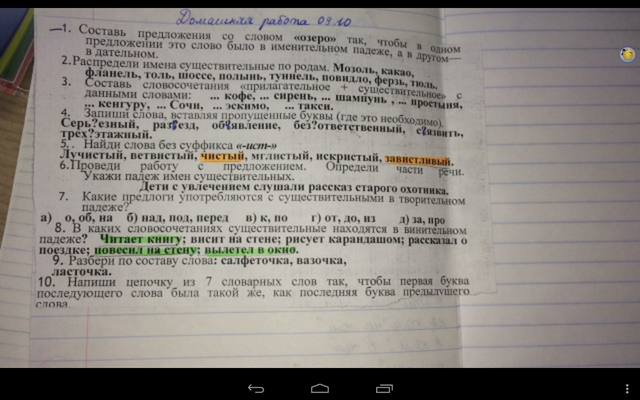 Домашняя работа 09.10
1. Составь предложения со словом «озеро» так, чтобы в одном
предложении это слово было в именительном падеже, а в другом—
в дательном.
2.Распредели имена существительные по родам. Мозоль, какао,
фланель, толь, шоссе, полынь, туннель, повидло, ферзь, тюль.
3. Составь словосочетания «прилагательное + существительное» с
данными словами: ... кофе, ... сирень, ... шампунь , ... простыня,
... кенгуру, ... Сочи, ... эскимо, ... такси.
4. Запиши слова, вставляя пропущенные буквы (где это необходимо).
Серь?езный, разъезд, объявление, без?ответственный, с?язвить,
трех?этажный.
5. . Найди слова без суффикса «-ист-»
Лучистый, ветвистый, чистый, мглистый, искристый, завистливый.
6.Проведи работу с предложением. Определи части речи.
Укажи падеж имен существительных.
Дети с увлечением слушали рассказ старого охотника.
7. Какие предлоги употребляются с существительными в творительном
падеже?
а) о, об, на б) над, под, перед в) к, по г) от, до, из д) за, про
8. В каких словосочетаниях существительные находятся в винительном
падеже? Читает книгу; висит на стене; рисует карандашом; рассказал о
поездке; повесил на стену; вылетел в окно.
9. Разбери по составу слова: салфеточка, вазочка,
ласточка.
10. Напиши цепочку из 7 словарных слов так, чтобы первая буква
последующего слова была такой же, как последняя буква предыдущего
слова.